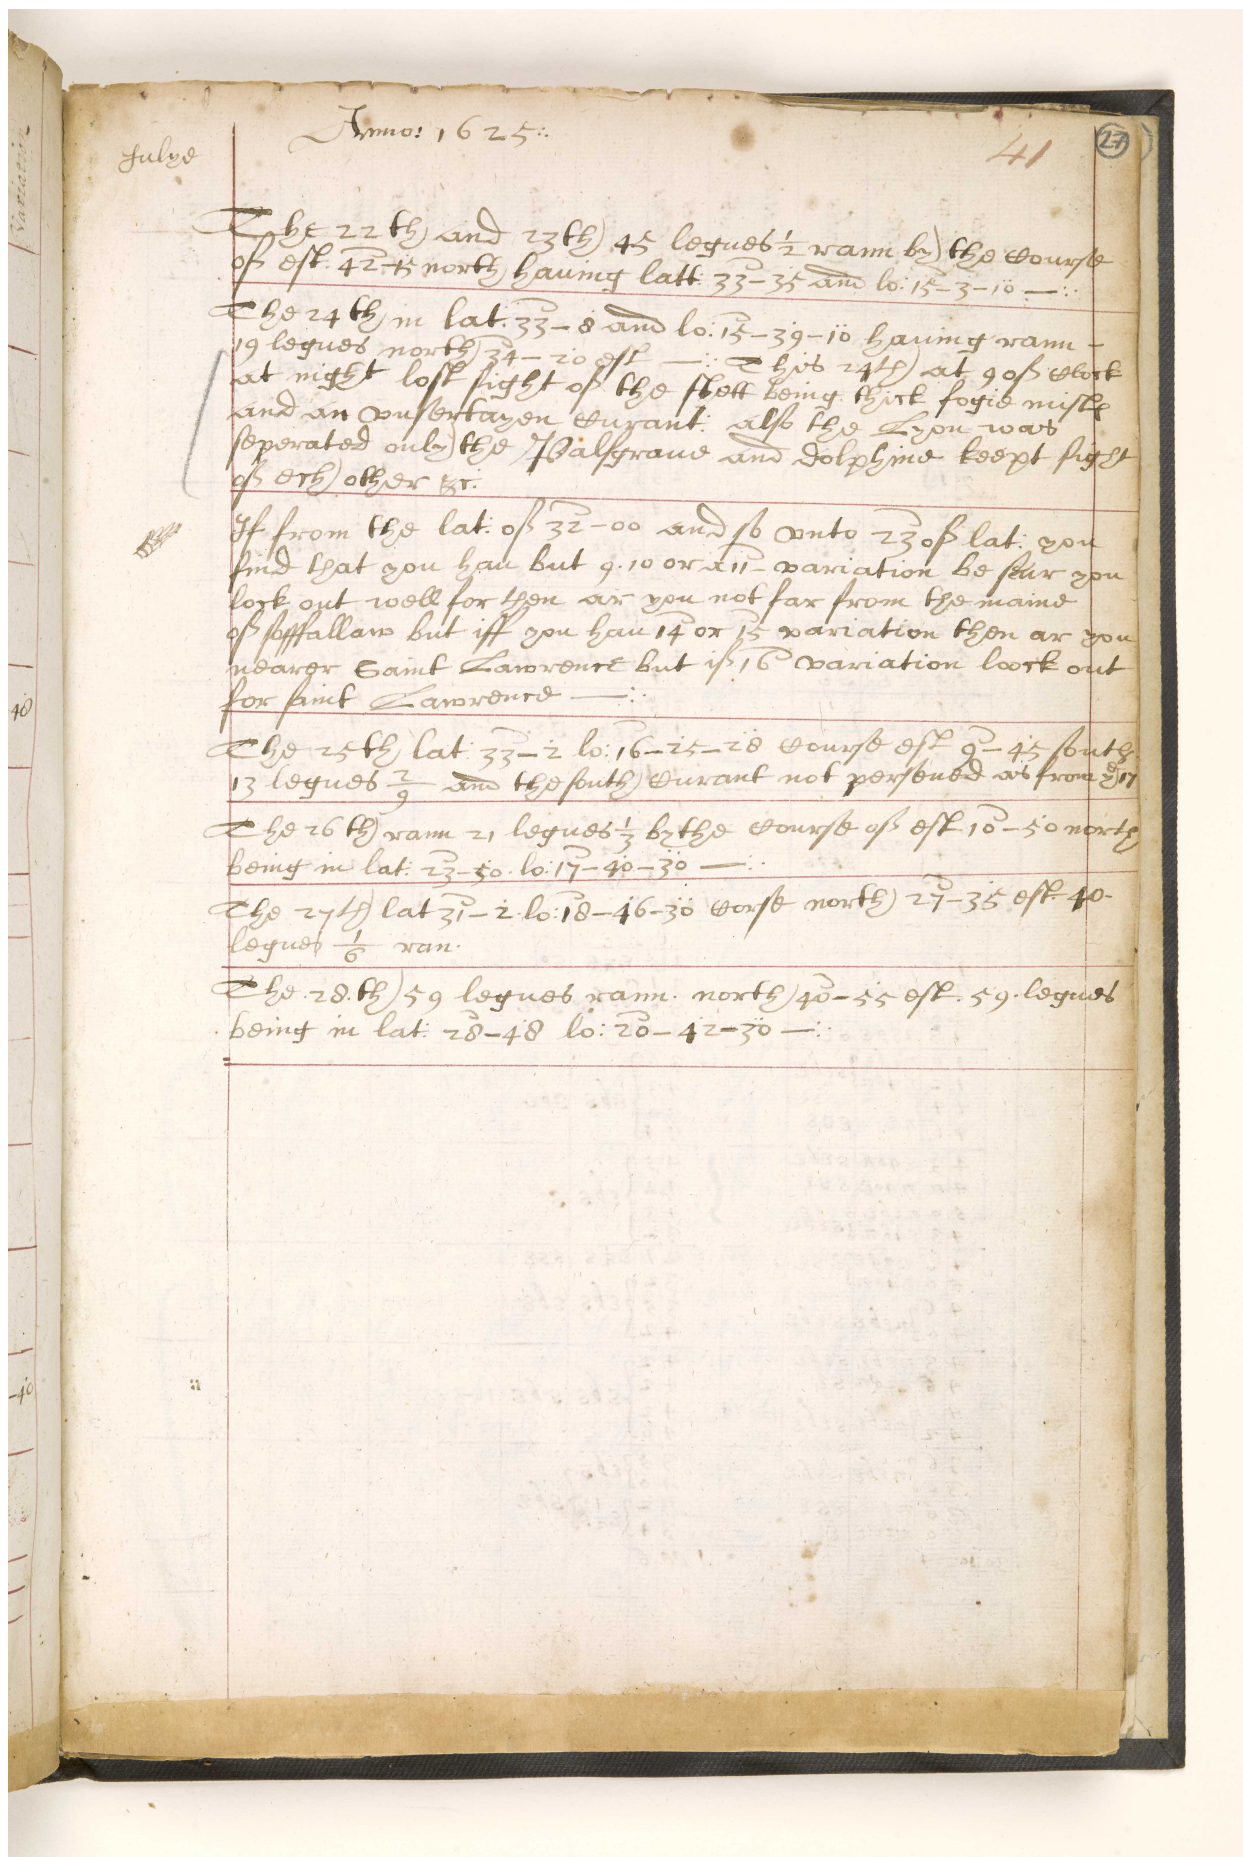 Anno: 1625
Julye
41
27
The 22th and 23th 45 legues ½ rann by the Course
of est. 42-15 north having latt: 33-35 and lo: 15-3-10
The 24th in lat: 33-8 and lo: 15-39-10 having rann -
19 legues north 34-20 est This 24th at 9 of Clock
at night lost sight of the flett being thick fogie mists
and an unsertayen Curant: also the Lyon was
seperated only the Palsgrave and Dolphine keept sight
of ech other &c.
If from the lat: of 32-00 and so unto 23 of lat: you
find that you hau but 9. 10 or a 11 variation be seur you
lock out well for then ar you not far from the maine
of but iff you hau 14 or 15 variation then ar you
nearer Saint Lawrence but if 16 variation loock out
for saint Lawrence
The 25th lat: 33-2 lo: 16-25-28 Course est 9-45 south
13 legues 2/9 and the south Curant not perseved as from ye 17
The 26th rann 21 legues ⅓ by the Course of est 10-50 north
being in lat: 23-50. lo: 17-40-30
The 27th lat 31-2. lo: 18-46-30 Corse north 27-35 est. 40.
legues 1/6 ran.
The 28.th 59 legues rann. north 40-55 est. 59. legues
being in lat: 28-48 lo: 20-42-30
40
-40